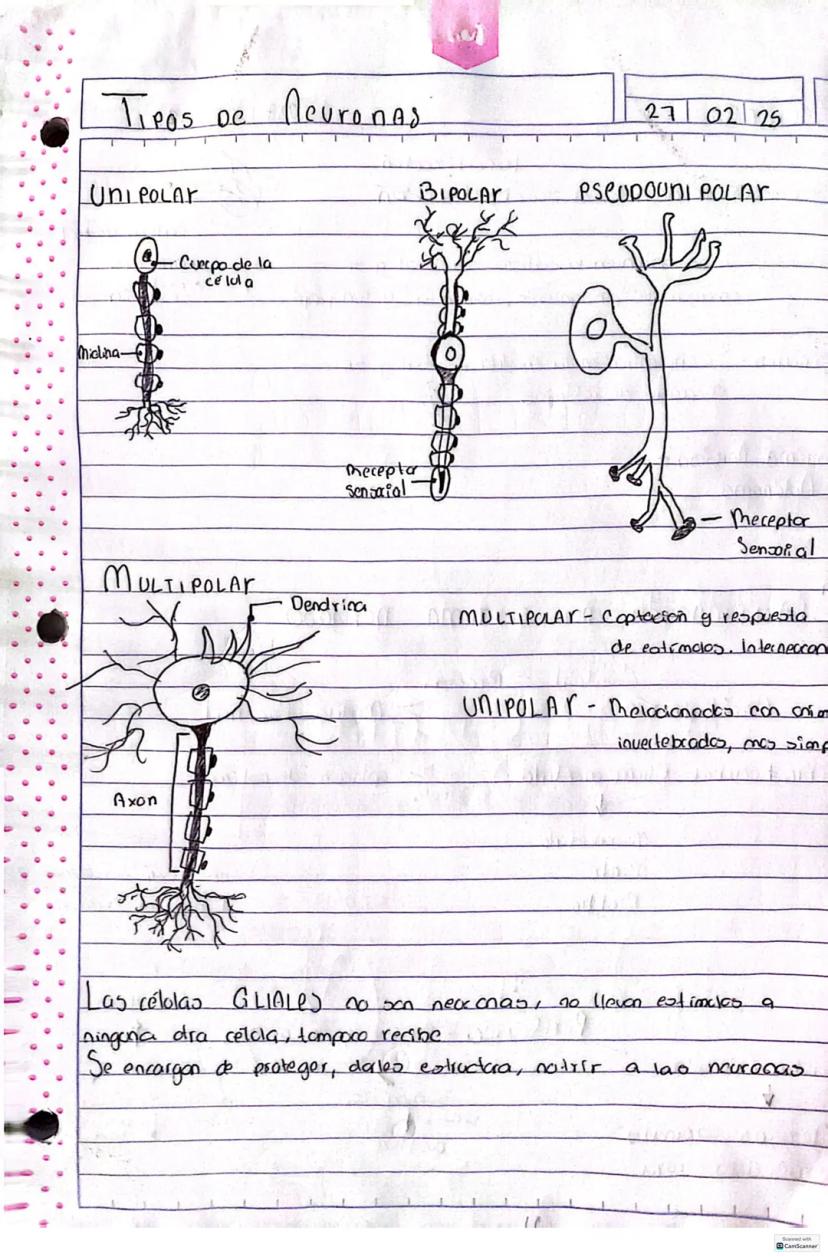 TIPOS DE NEURONAS
27 02 25
UNIPOLAR
BIPOLAR
PSEUDOUNIPOLAR
Cuerpo de la
célula
Mielina
Receptor
sensorial
Receptor
Sensorial
MULTIPOLAR
Dendrina
MULTIPOLAR - Captación y respuesta
de estímulos. Interneuron
UNIPOLAR - Relacionados con
invertebrados, mas simp
Axon
Las células GLIALES no son neuronas, no llevan estímulos a
ninguna otra célula, tampoco recibe
Se encargan de proteger, darles estructura, nutrir a las neuronas
Scanned with
CamScanner